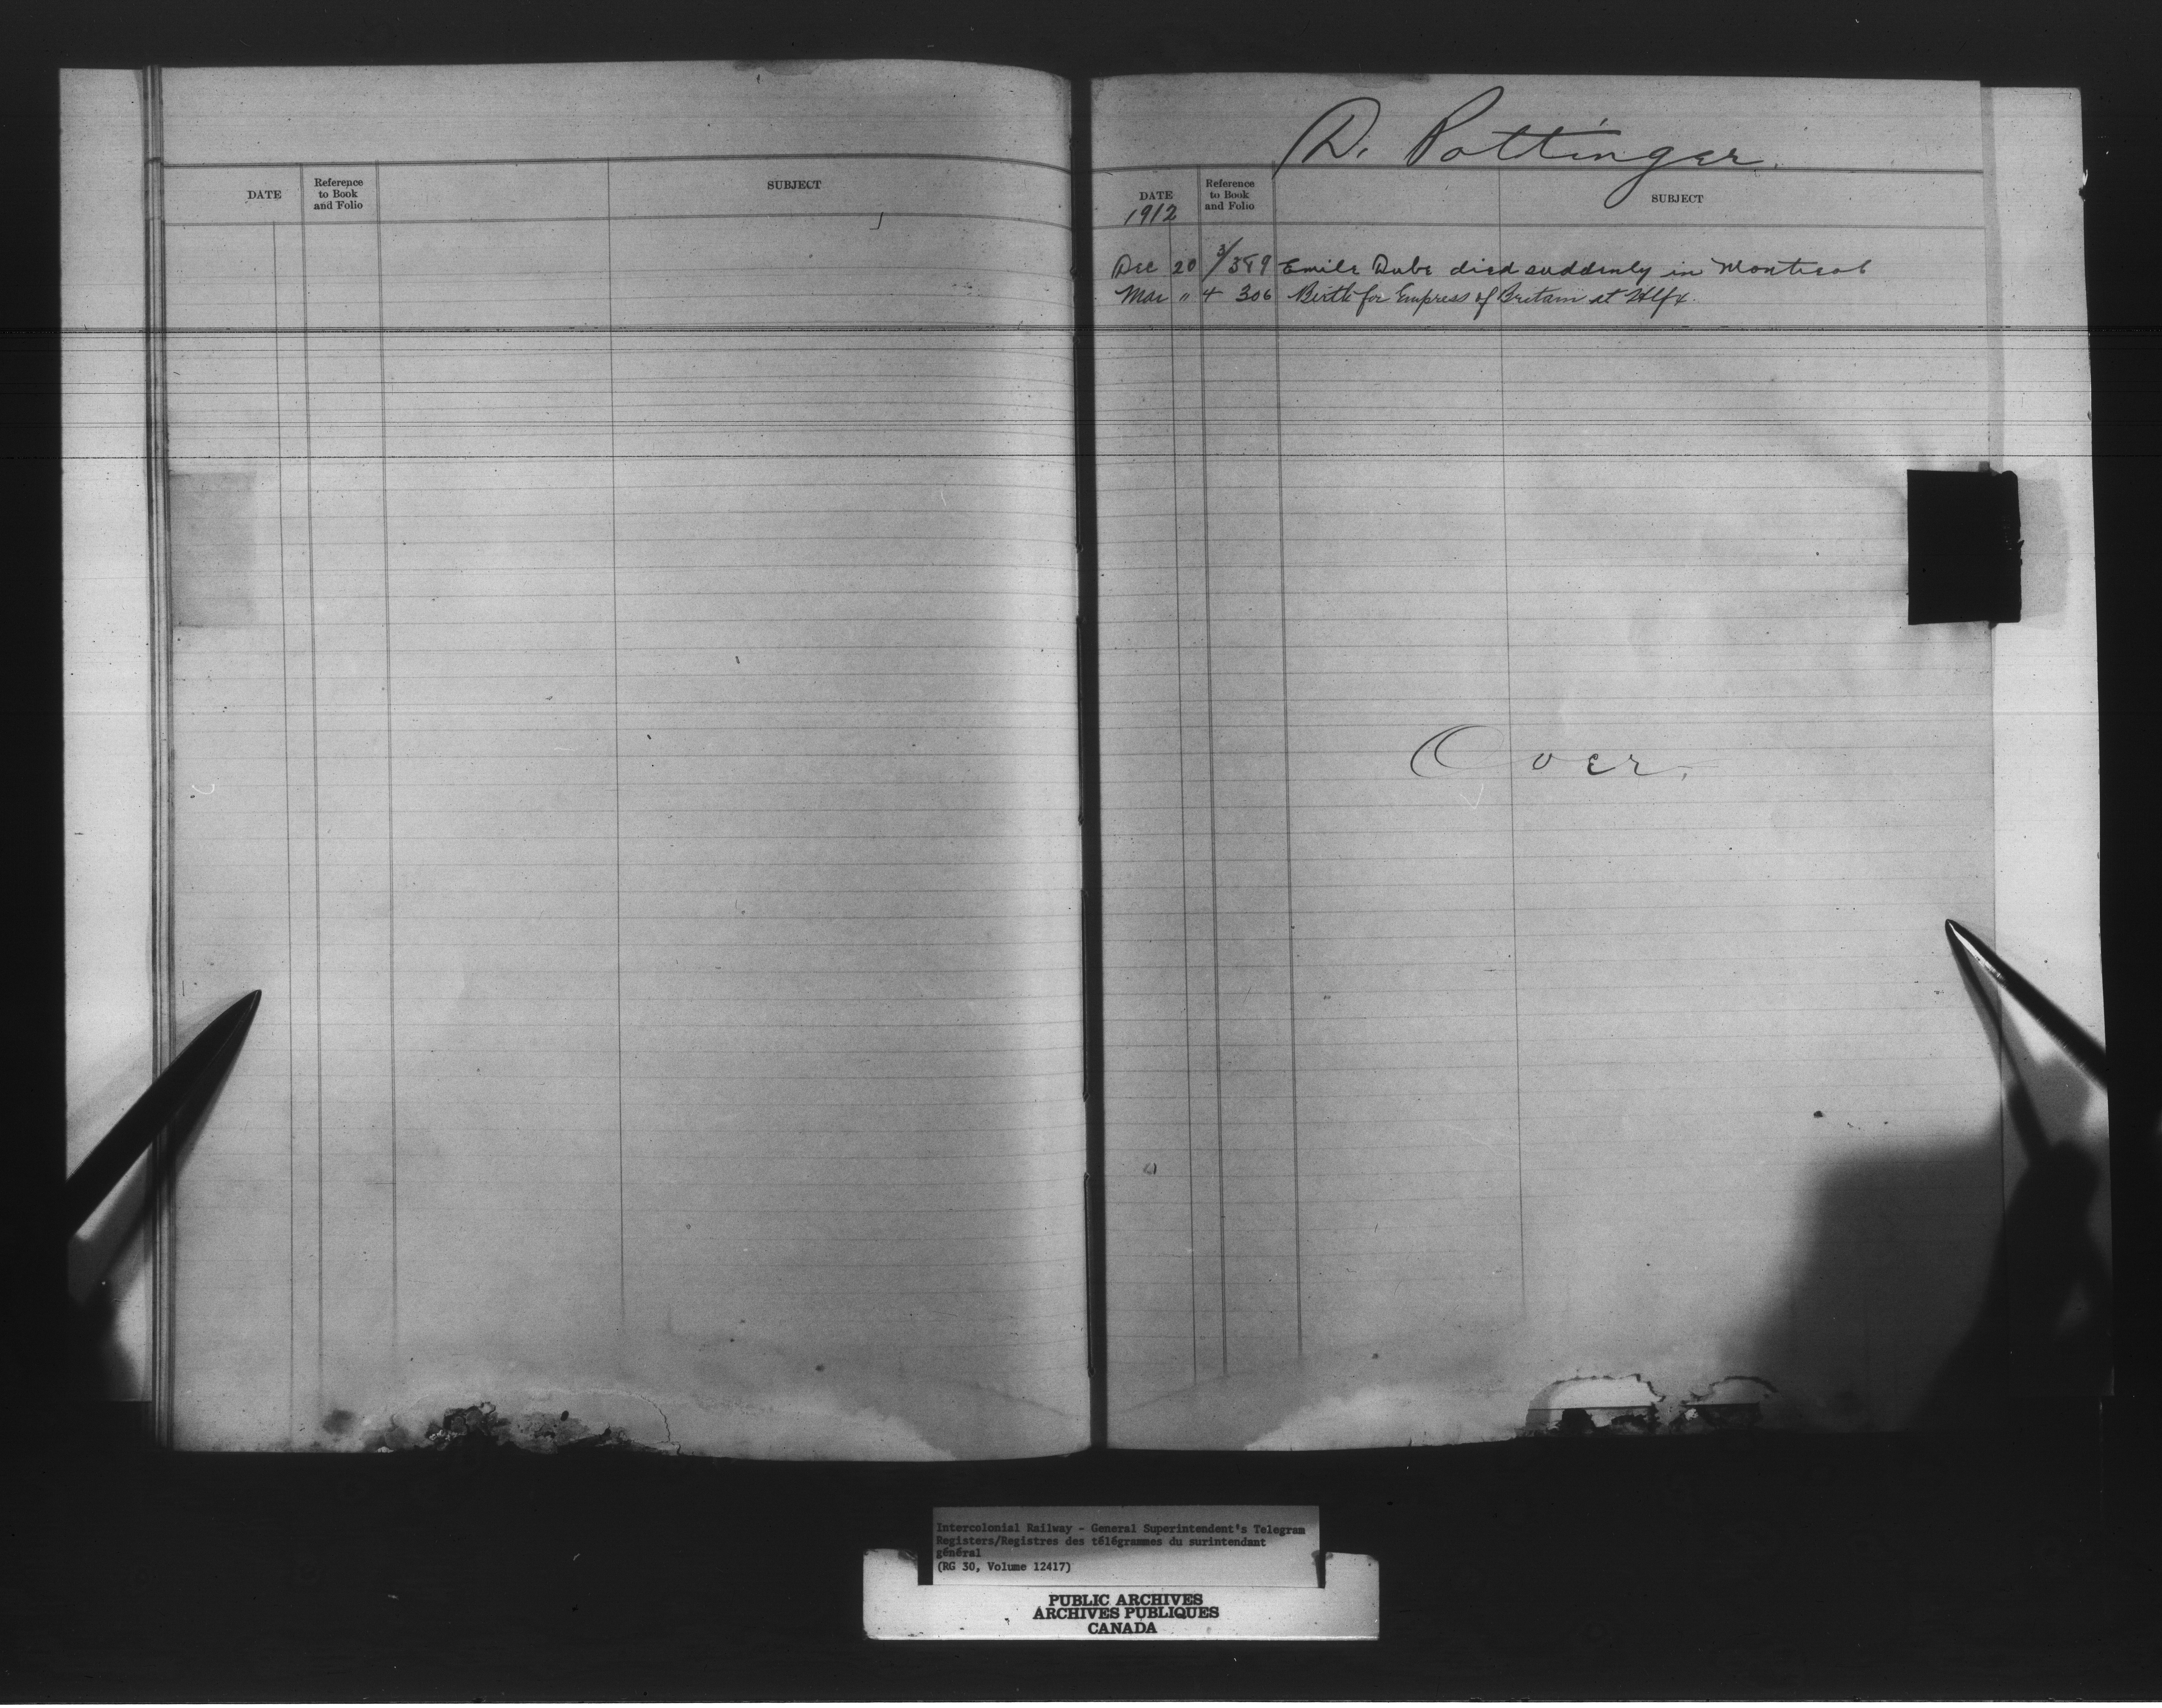 DATE
Reference to Book and Folio
SUBJECT
D. Pottinger.
DATE
Reference to Book and Folio
SUBJECT
1912
Dec 20 3/389 Emile Dube died suddenly in Montreal
Mar " 4 306 Birth for Empress of Britain at Hlfx.
Over.
Intercolonial Railway - General Superintendent's Telegram
Registers/Registres des télégrammes du surintendant
général
(RG 30, Volume 12417)
PUBLIC ARCHIVES
ARCHIVES PUBLIQUES
CANADA